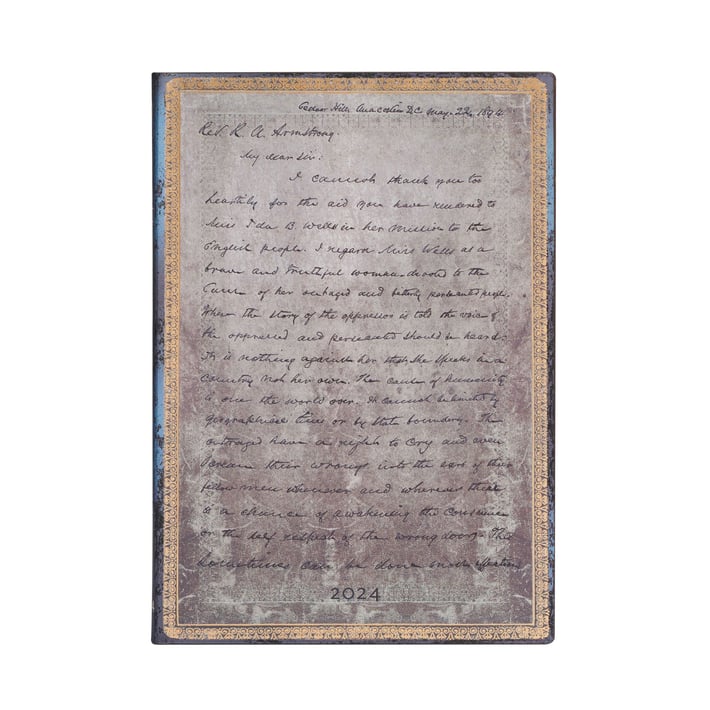 Cedar Hill Anacostia D.C. May. 22. 1894
Rev. R. A. Armstrong.
My dear Sir:
I cannot thank you too
heartily for the aid you have rendered to
Miss Ida B. Wells in her mission to the
English people. I regard Miss Wells as a
brave and truthful woman devoted to the
Cause of her outraged and bitterly persecuted people.
When the story of the oppressor is told the voice of
the oppressed and persecuted should be heard.
It is nothing against her that she speaks in a
country not her own. The cause of humanity
is one the world over. It cannot be limited by
geographical lines or by State boundaries. The
outraged have a right to Cry and even
scream their wrongs into the ears of their
fellow men whenever and wherever there
is a chance of awakening the Conscience
or the self respect of the wrong doers. This
sometimes can be done more effectively
2024